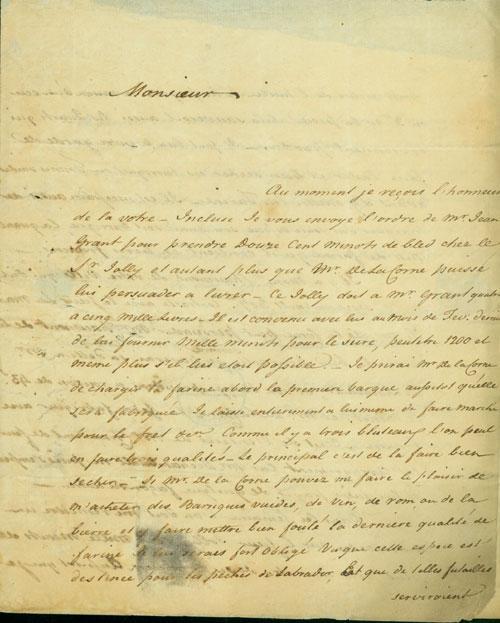 Monsieur
Au moment je reçois l'honneur
de la votre - Incluse Je vous envoye l'ordre de Mr. Jean
Grant pour prendre Douze Cent minots de bled chez le
Sr. Jolly et autant plus que Mr. De La Corne puisse
lui persuader a livrer - Ce Jolly doit a Mr. Grant quatre
a cinq mille Livres - Il est convenu avec lui au Mois de Fev. dernier
de lui fournir Mille minots pour le sure, peutetre 1200 et
meme plus s'il lui etoit possible. - Je prirai Mr. De la Corne
de charger la farine abord la premiere barque, aussitot qu'elle
sera fabriquée Je laisse entierement a lui meme de faire marché
pour le fret &ca. Comme il y a trois bluteaux l'on peut
en faire trois qualités - Le principal c'est de la faire bien
secher - Si Mr. de la Corne pouvez me faire le plaisir de
m'acheter des Barriques vuides, de vin, de rom, ou de la
bierre et faire mettre bien foulé la derniere qualité de
farine Je lui serais fort obligé Vu que cette espece est
destinée pour les pêches de Labrador, Et que de telles futailles
serviroient